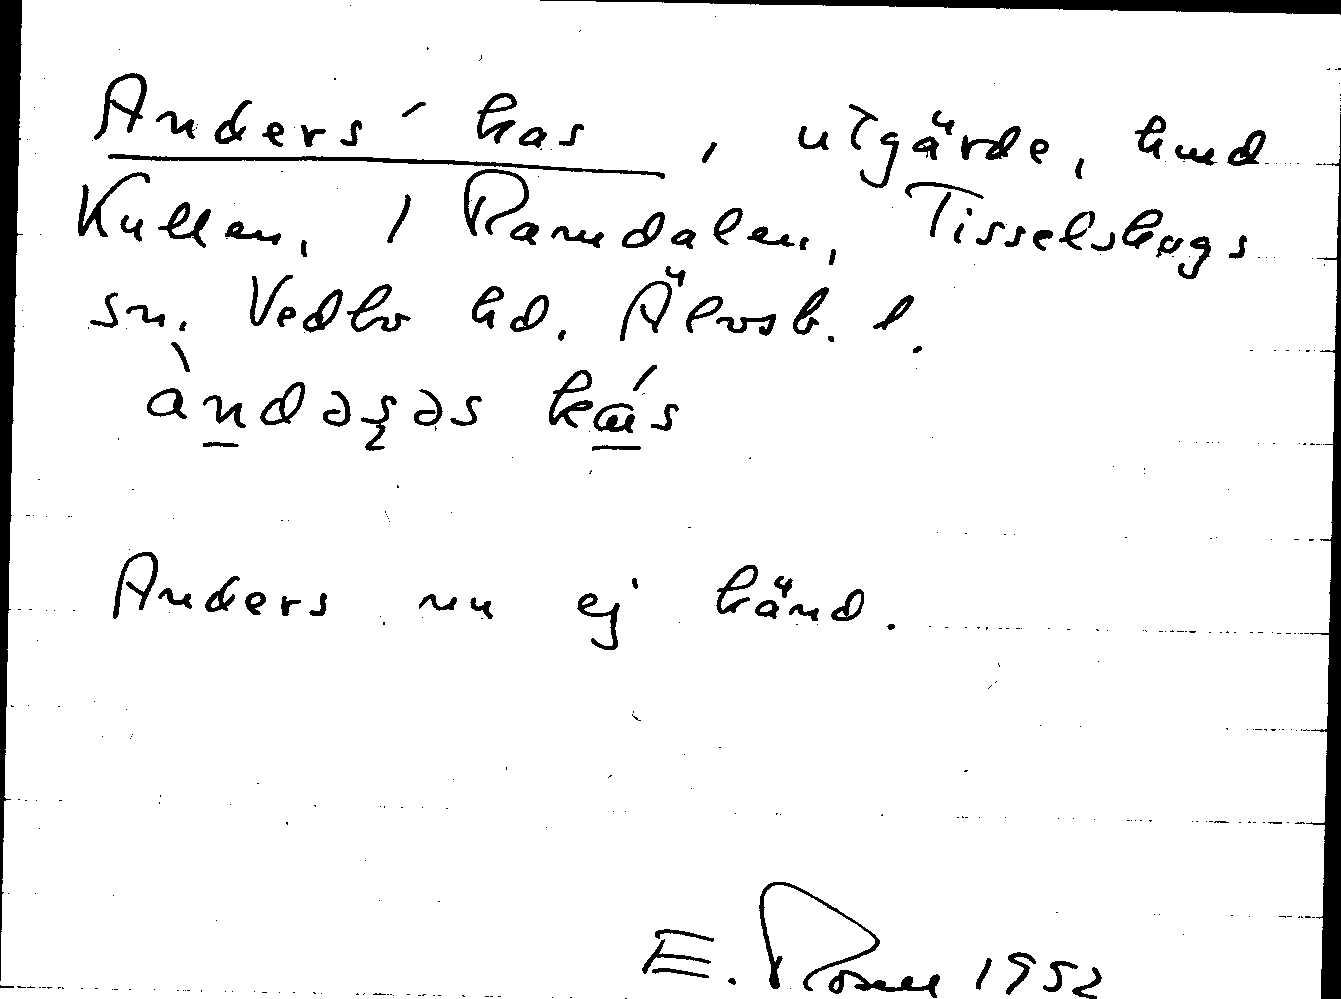 Anders' kas, utgärde, hmd
Kullen, 1 Ramdalen, Tisselskogs
sn. Vedbo hd. Älvsb. l.
àndəʂəs kás
Anders nu ej känd.
E. Rosell 1952